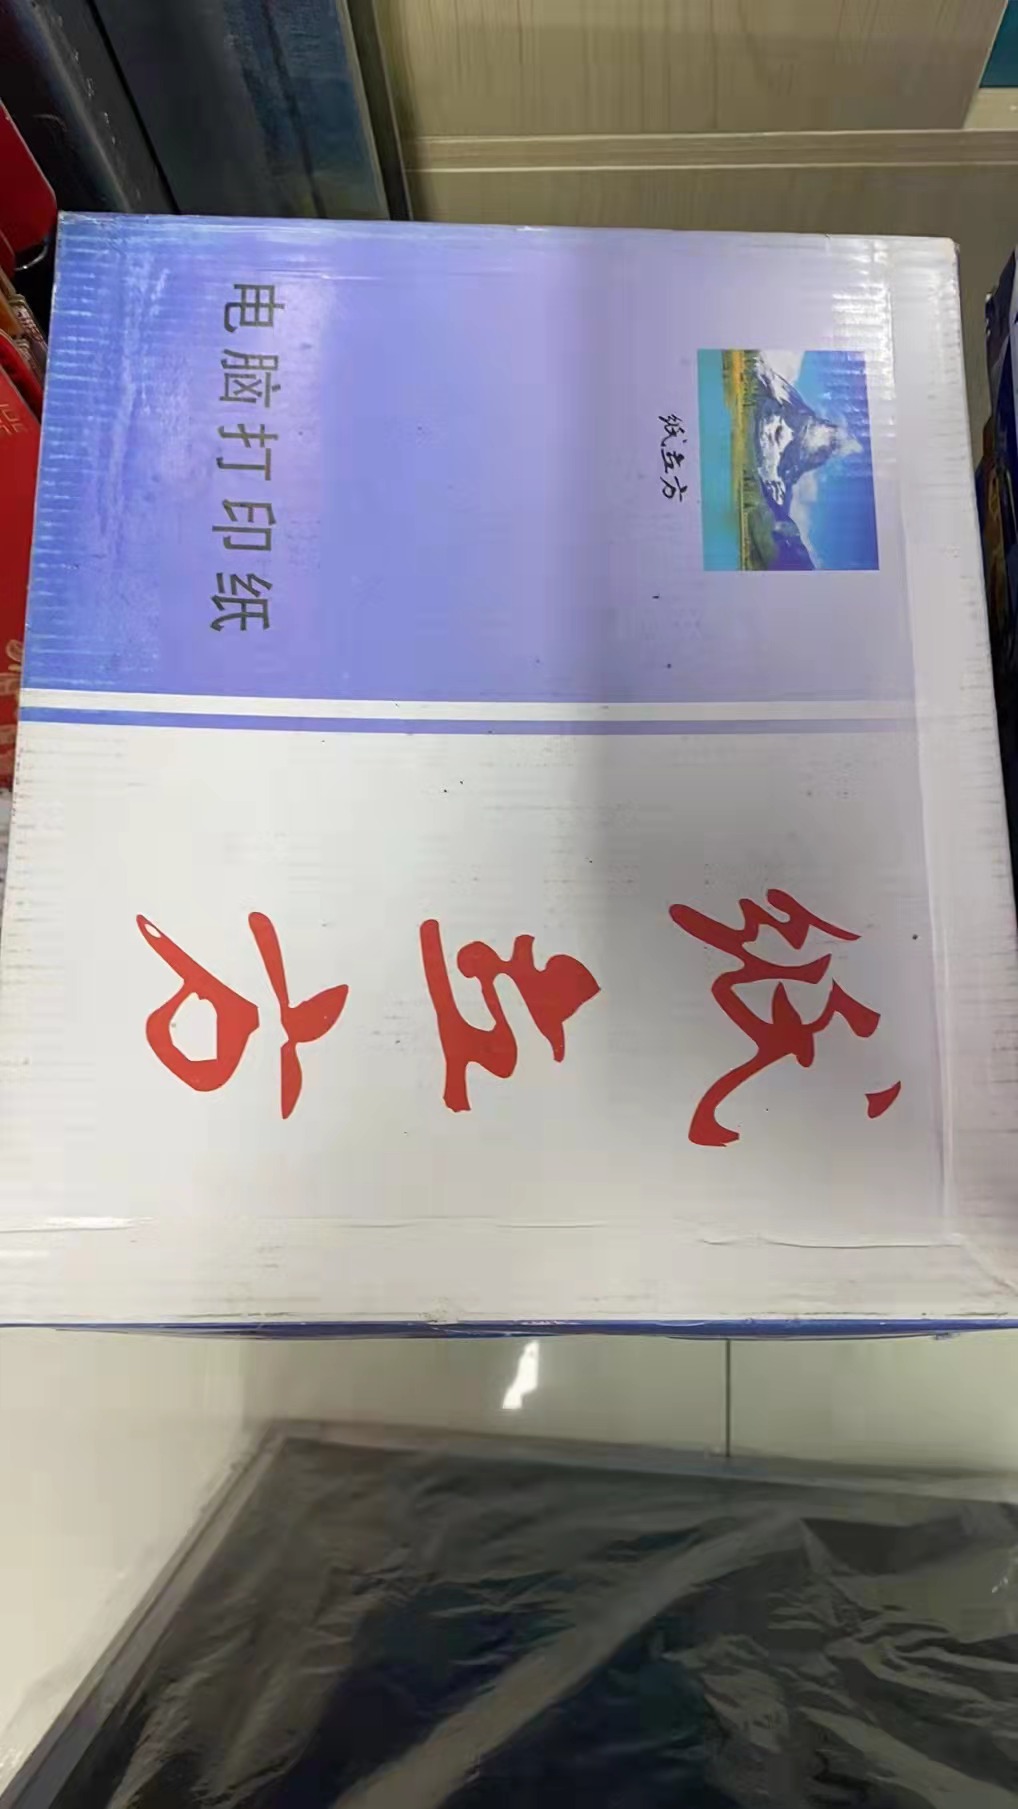 纸立方
电脑打印纸
纸立方